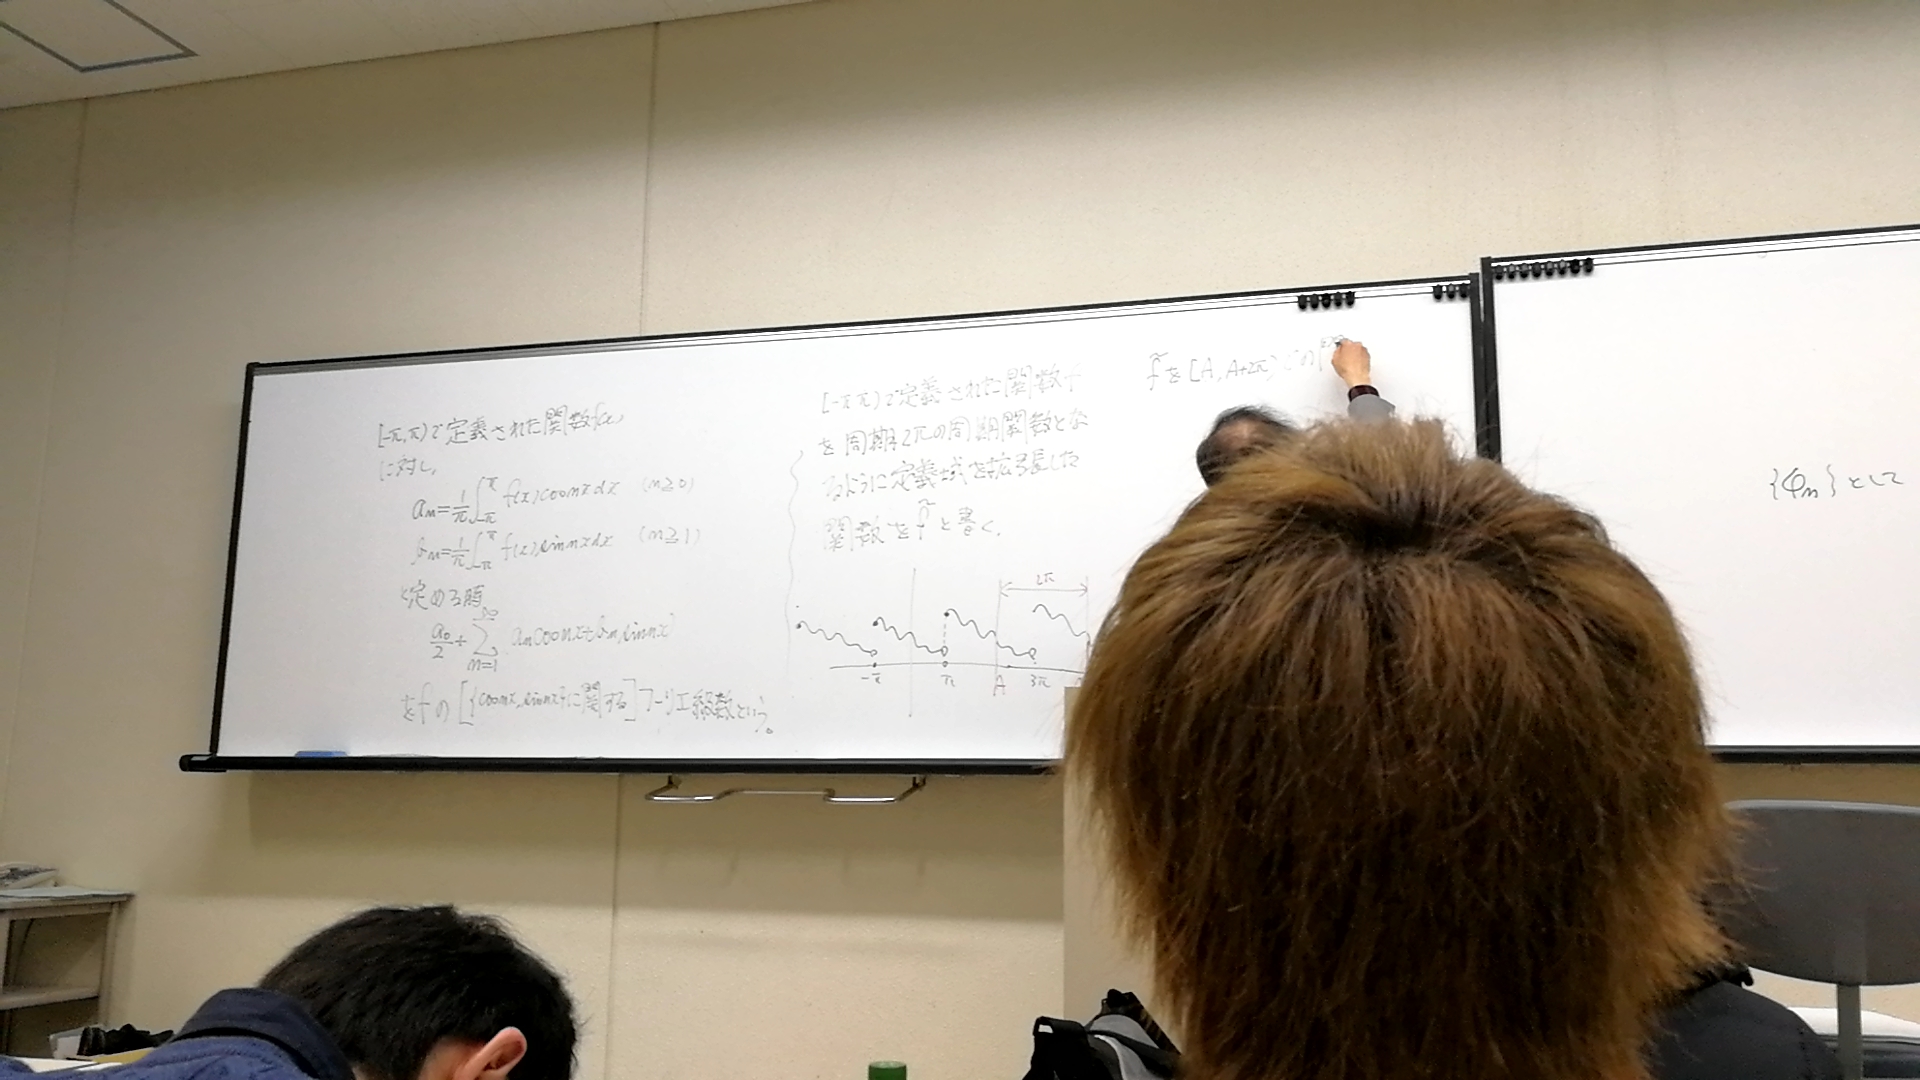 [-π,π)で定義された関数f(x)
に対し,
an=1/π∫_{-π}^{π} f(x)cosnxdx (n≧0)
bn=1/π∫_{-π}^{π} f(x)sinnxdx (n≧1)
と定める時
a0/2+∑_{n=1}^{∞} ancosnx+bnsinnx
をfの[{cosnx,sinnx}に関する]フーリエ級数という。
[-π,π)で定義された関数f
を周期2πの周期関数とな
るように定義域を拡張した
関数をf̃と書く.
2π
-π π A 3π
f̃を[A,A+2π)での
{φn}として